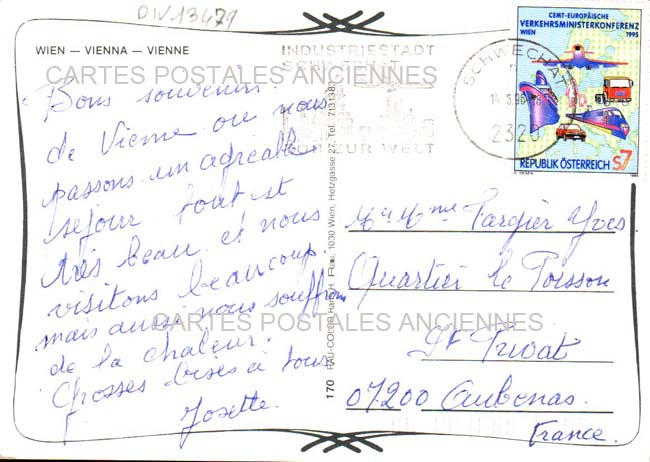 DIV13479
WIEN — VIENNA — VIENNE
CARTES POSTALES ANCIENNES
Bons souvenirs
de Vienne ou nous
passons un agréable
séjour tout est
très beau et nous
visitons beaucoup
mais aussi nous souffrons
de la chaleur.
Grosses bises à tous
Josette.
INDUSTRIESTADT
SCHWECHAT
TOR ZUR WELT
SCHWECHAT
2320
CEMT-EUROPÄISCHE
VERKEHRSMINISTERKONFERENZ
WIEN 1995
REPUBLIK ÖSTERREICH S7
170 RAU-COLOR 1030 Wien, Hetzgasse 27, Tel. 7131383
Mr & Mme Targier Yves
Quartier le Poisson
CARTES POSTALES ANCIENNES
St Privat
07200 Aubenas
France.